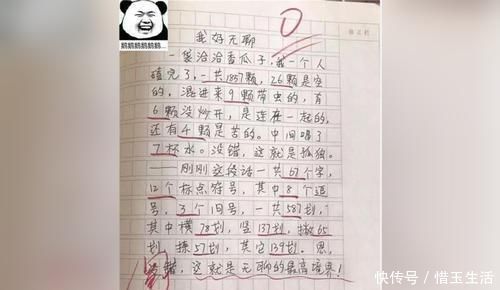 鹅鹅鹅鹅鹅鹅
0
我好无聊
一袋洽洽香瓜子,我一个人
嗑完了,一共1857颗,26颗是空
的,混进来9颗带虫的,有
6颗没炒开,是连在一起的,
还有4颗是苦的。中间喝了
7杯水。没错,这就是孤独。
——刚刚这段话一共67个字,
12个标点符号,其中8个逗
号,3个句号,一共587划,
其中横78划,竖137划,撇65
划,捺57划,其它139划。恩,
没错,这就是无聊的最高境界!
快传号/惜玉生活